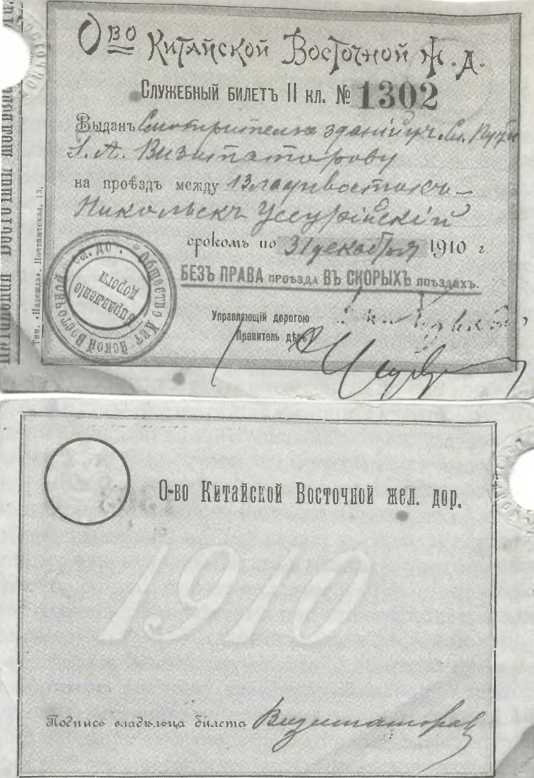 О-во Китайской Восточной Ж. Д.
Служебный билетъ II кл. № 1302
Выданъ Смотрителю зданій уч. Сл. Пути
Визитаторову
на проѣздъ между Владивостокъ –
Никольскъ Уссурійскій
срокомъ по 31 декабря 1910 г
БЕЗЪ ПРАВА проѣзда ВЪ СКОРЫХЪ поѣздахъ.
Управляющій дорогою
Правитель дѣлъ
Общество Китайской Восточной
Управленіе
дороги
Тип. „Надежда“,
О-во Китайской Восточной жел. дор.
1910
Подпись владѣльца билета Визитаторов